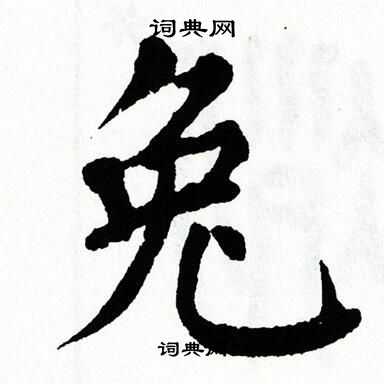 词典网
兔
词典网